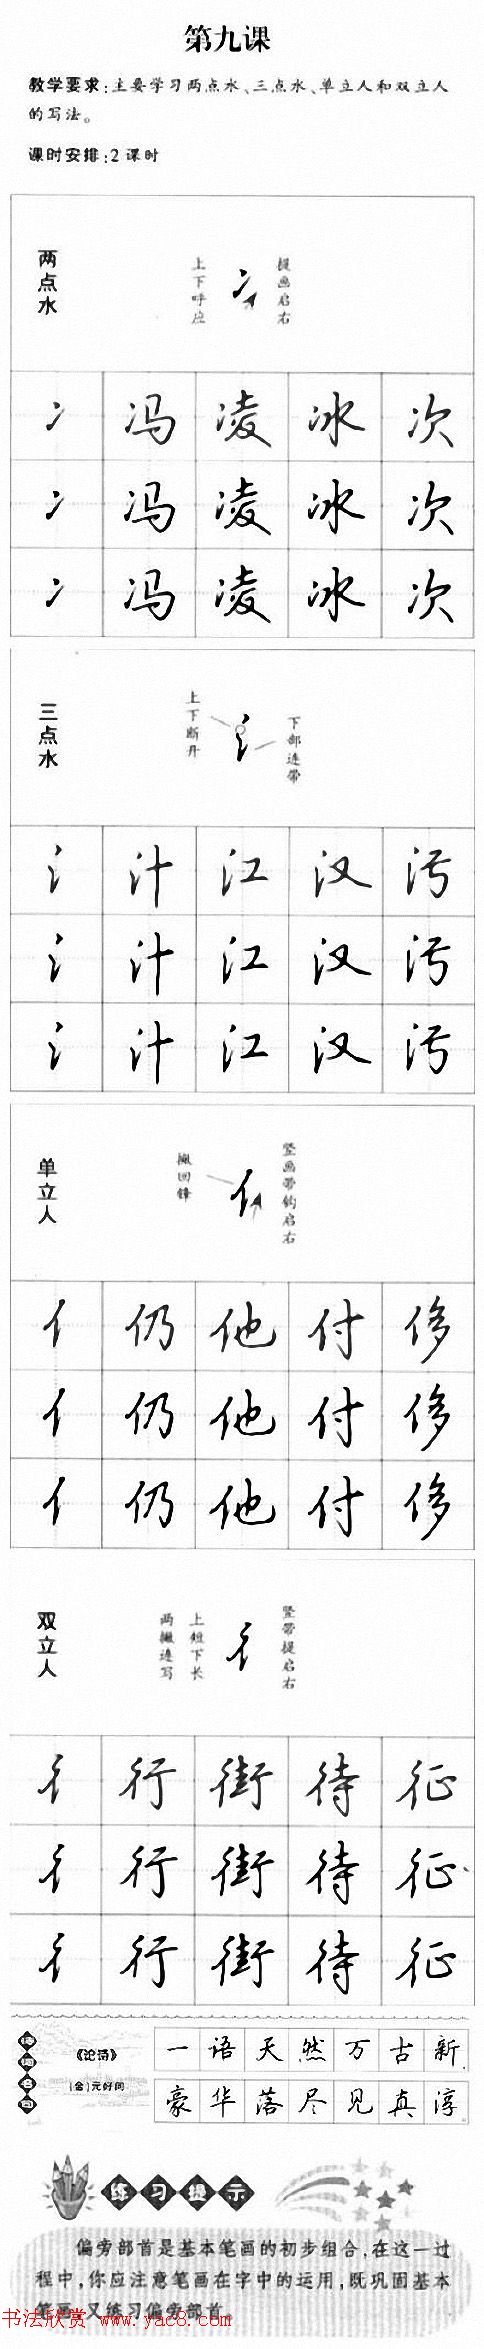 第九课
教学要求:主要学习两点水、三点水、单立人和双立人
的写法。
课时安排:2课时
两点水
上下呼应
提画启右
冫 冯 凌 冰 次
冫 冯 凌 冰 次
冫 冯 凌 冰 次
三点水
上下断开
下部连带
氵 汁 江 汉 污
氵 汁 江 汉 污
氵 汁 江 汉 污
单立人
撇回锋
竖画带钩启右
亻 仍 他 付 侈
亻 仍 他 付 侈
亻 仍 他 付 侈
双立人
上短下长
两撇连写
竖带提启右
彳 行 街 待 征
彳 行 街 待 征
彳 行 街 待 征
诗词名句
《论诗》
(金)元好问
一语天然万古新.
豪华落尽见真淳。
练习提示
偏旁部首是基本笔画的初步组合,在这一过
程中,你应注意笔画在字中的运用,既巩固基本
笔画,又练习偏旁部首
书法欣赏 www.yac8.com